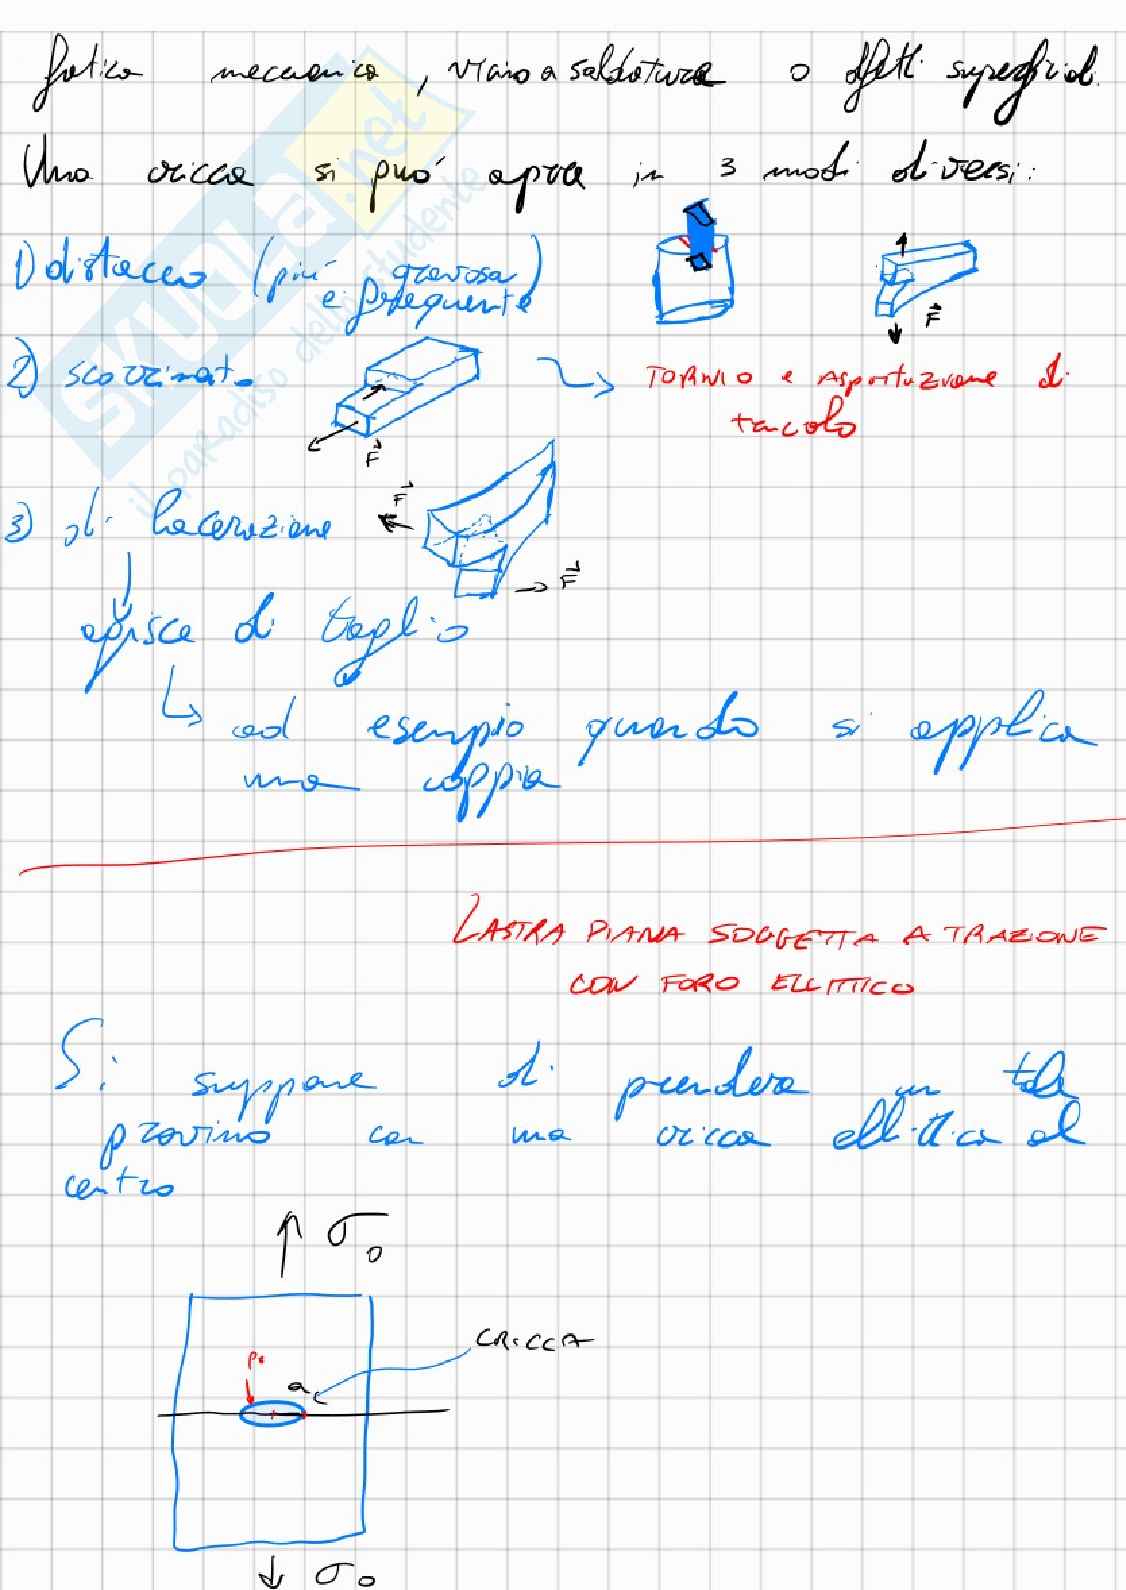 fatica meccanica, vicino a saldature o difetti superficiali.
Una cricca si può aprire in 3 modi diversi:
1) distacco (più gravosa
e frequente)
F
2) scorrimento
TORNIO e Asportazione di
truciolo
F
F
3) di lacerazione
F
agisce di taglio
ad esempio quando si applica
una coppia
LASTRA PIANA SOGGETTA A TRAZIONE
CON FORO ELLITTICO
Si suppone di prendere un tale
provino con una cricca ellittica al
centro
σ₀
CRICCA
ρ₀
a
σ₀
SKUOLA.net
il paradiso dello studente